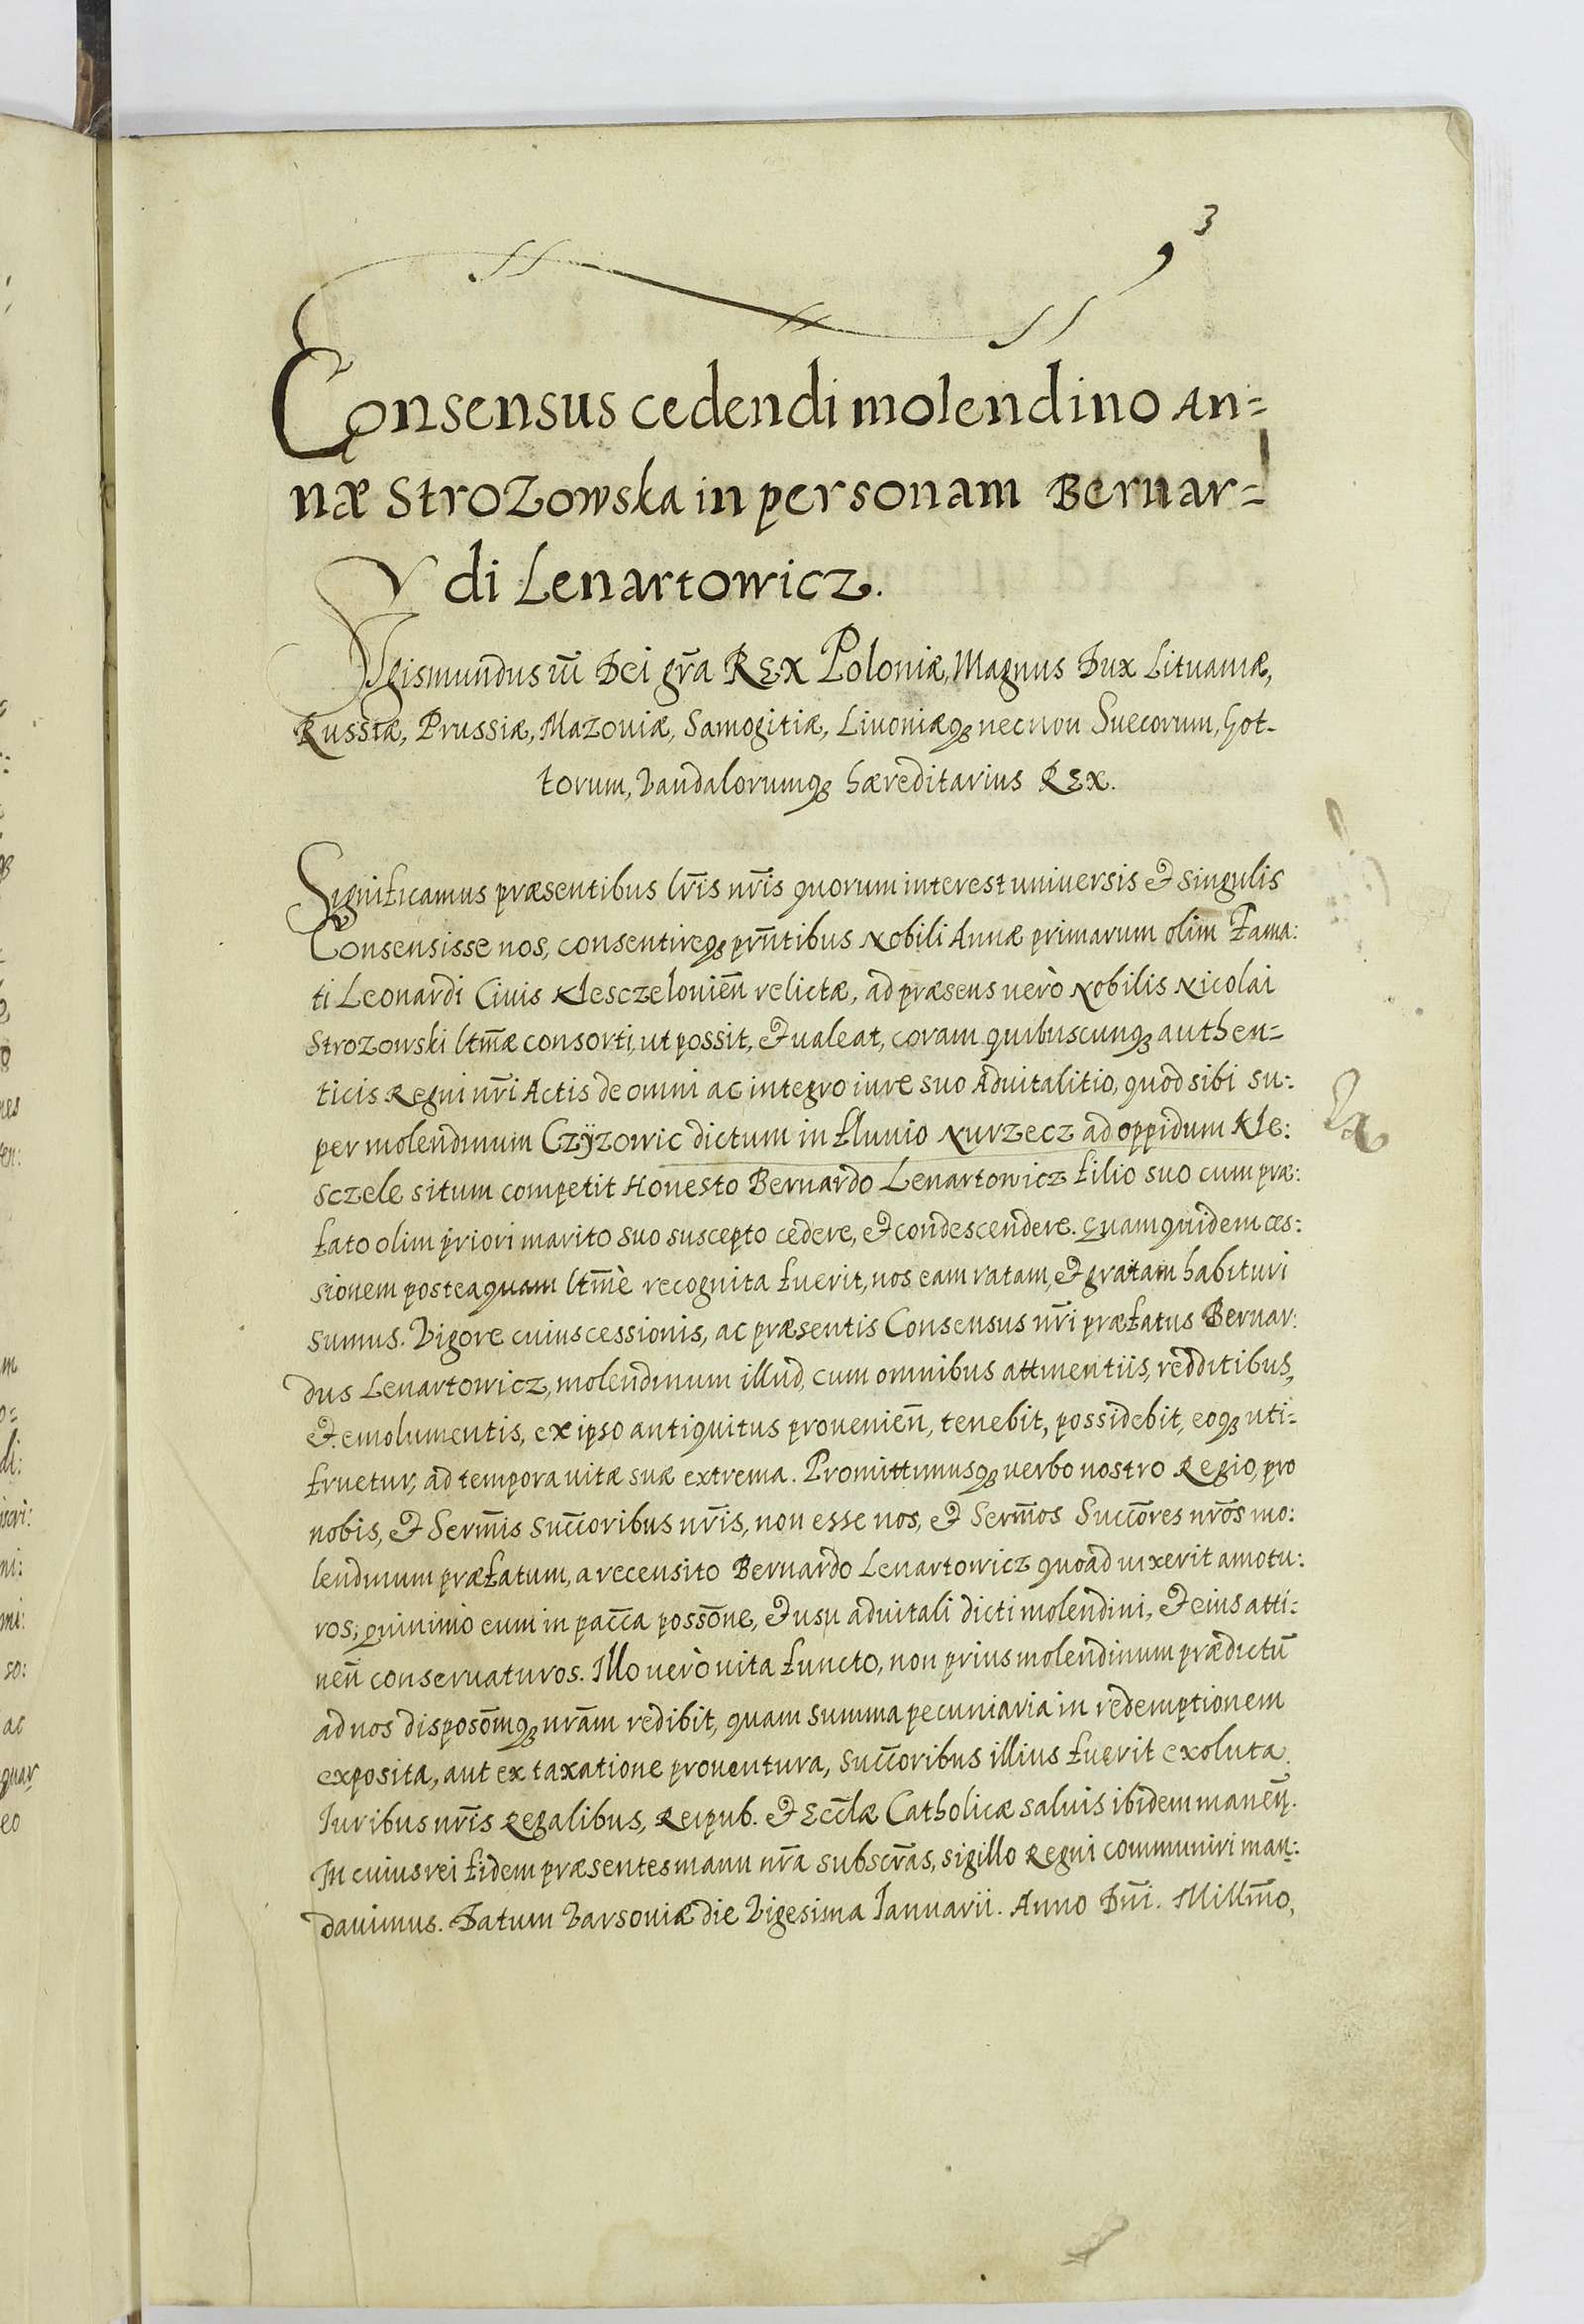 3
Consensus cedendi molendino An=
næ Strozowska in personam Bernar=
di Lenartowicz.
Sigismundus iii̅ Dei gr̃a REX Poloniæ, Magnus Dux Lituaniæ,
Russiæ, Prussiæ, Mazouiæ, Samogitiæ, Liuoniæq₃ necnon Suecorum, Got-
torum, Vandalorumq₃ hæreditarius REX.
Significamus præsentibus lr̃is nr̃is quorum interest uniuersis & singulis
Consensisse nos, consentireq₃ prñtibus Nobili Annæ primarum olim Fama:
ti Leonardi Ciuis Klesczelonieñ relictæ, ad præsens uerò Nobilis Nicolai
Strozowski ltm̃æ consorti, ut possit, & ualeat, coram quibuscunq₃ authen=
ticis Regni nr̃i Actis de omni ac integro iure suo Aduitalitio, quod sibi su:
per molendinum Czÿzowic dictum in fluuio Nurzecz ad oppidum Kle:
sczele situm competit Honesto Bernardo Lenartowicz filio suo cum præ:
fato olim priori marito suo suscepto cedere, & condescendere. Quam quidem ces:
sionem posteaquam ltm̃è recognita fuerit, nos eam ratam, & gratam habituri
sumus. Vigore cuius cessionis, ac præsentis Consensus nr̃i præfatus Bernar:
dus Lenartowicz, molendinum illud, cum omnibus attinentiis, redditibus,
& emolumentis, ex ipso antiquitus prouenieñ, tenebit, possidebit, eoq₃ uti=
fruetur, ad tempora uitæ suæ extrema. Promittimusq₃ uerbo nostro Regio, pro
nobis, & Serm̃is Succ̃oribus nr̃is, non esse nos, & Serm̃os Succ̃ores nr̃os mo:
lendinum præfatum, a recensito Bernardo Lenartowicz quoad uixerit amotu:
ros, quinimo eum in pacc̃a possõne, & usu aduitali dicti molendini, & eius atti:
neñ conseruaturos. Illo uerò uita functo, non prius molendinum prædictũ
ad nos disposõmq₃ nr̃am redibit, quam summa pecuniaria in redemptionem
exposita, aut ex taxatione prouentura, succ̃oribus illius fuerit exoluta.
Iuribus nr̃is Regalibus, Reipub. & Eccl̃æ Catholicæ saluis ibidem maneñ.
In cuius rei fidem præsentes manu nr̃a subscr̃as, sigillo Regni communiri man:
dauimus. Datum Varsouiæ die Vigesima Ianuarii. Anno Dñi. Millm̃o,